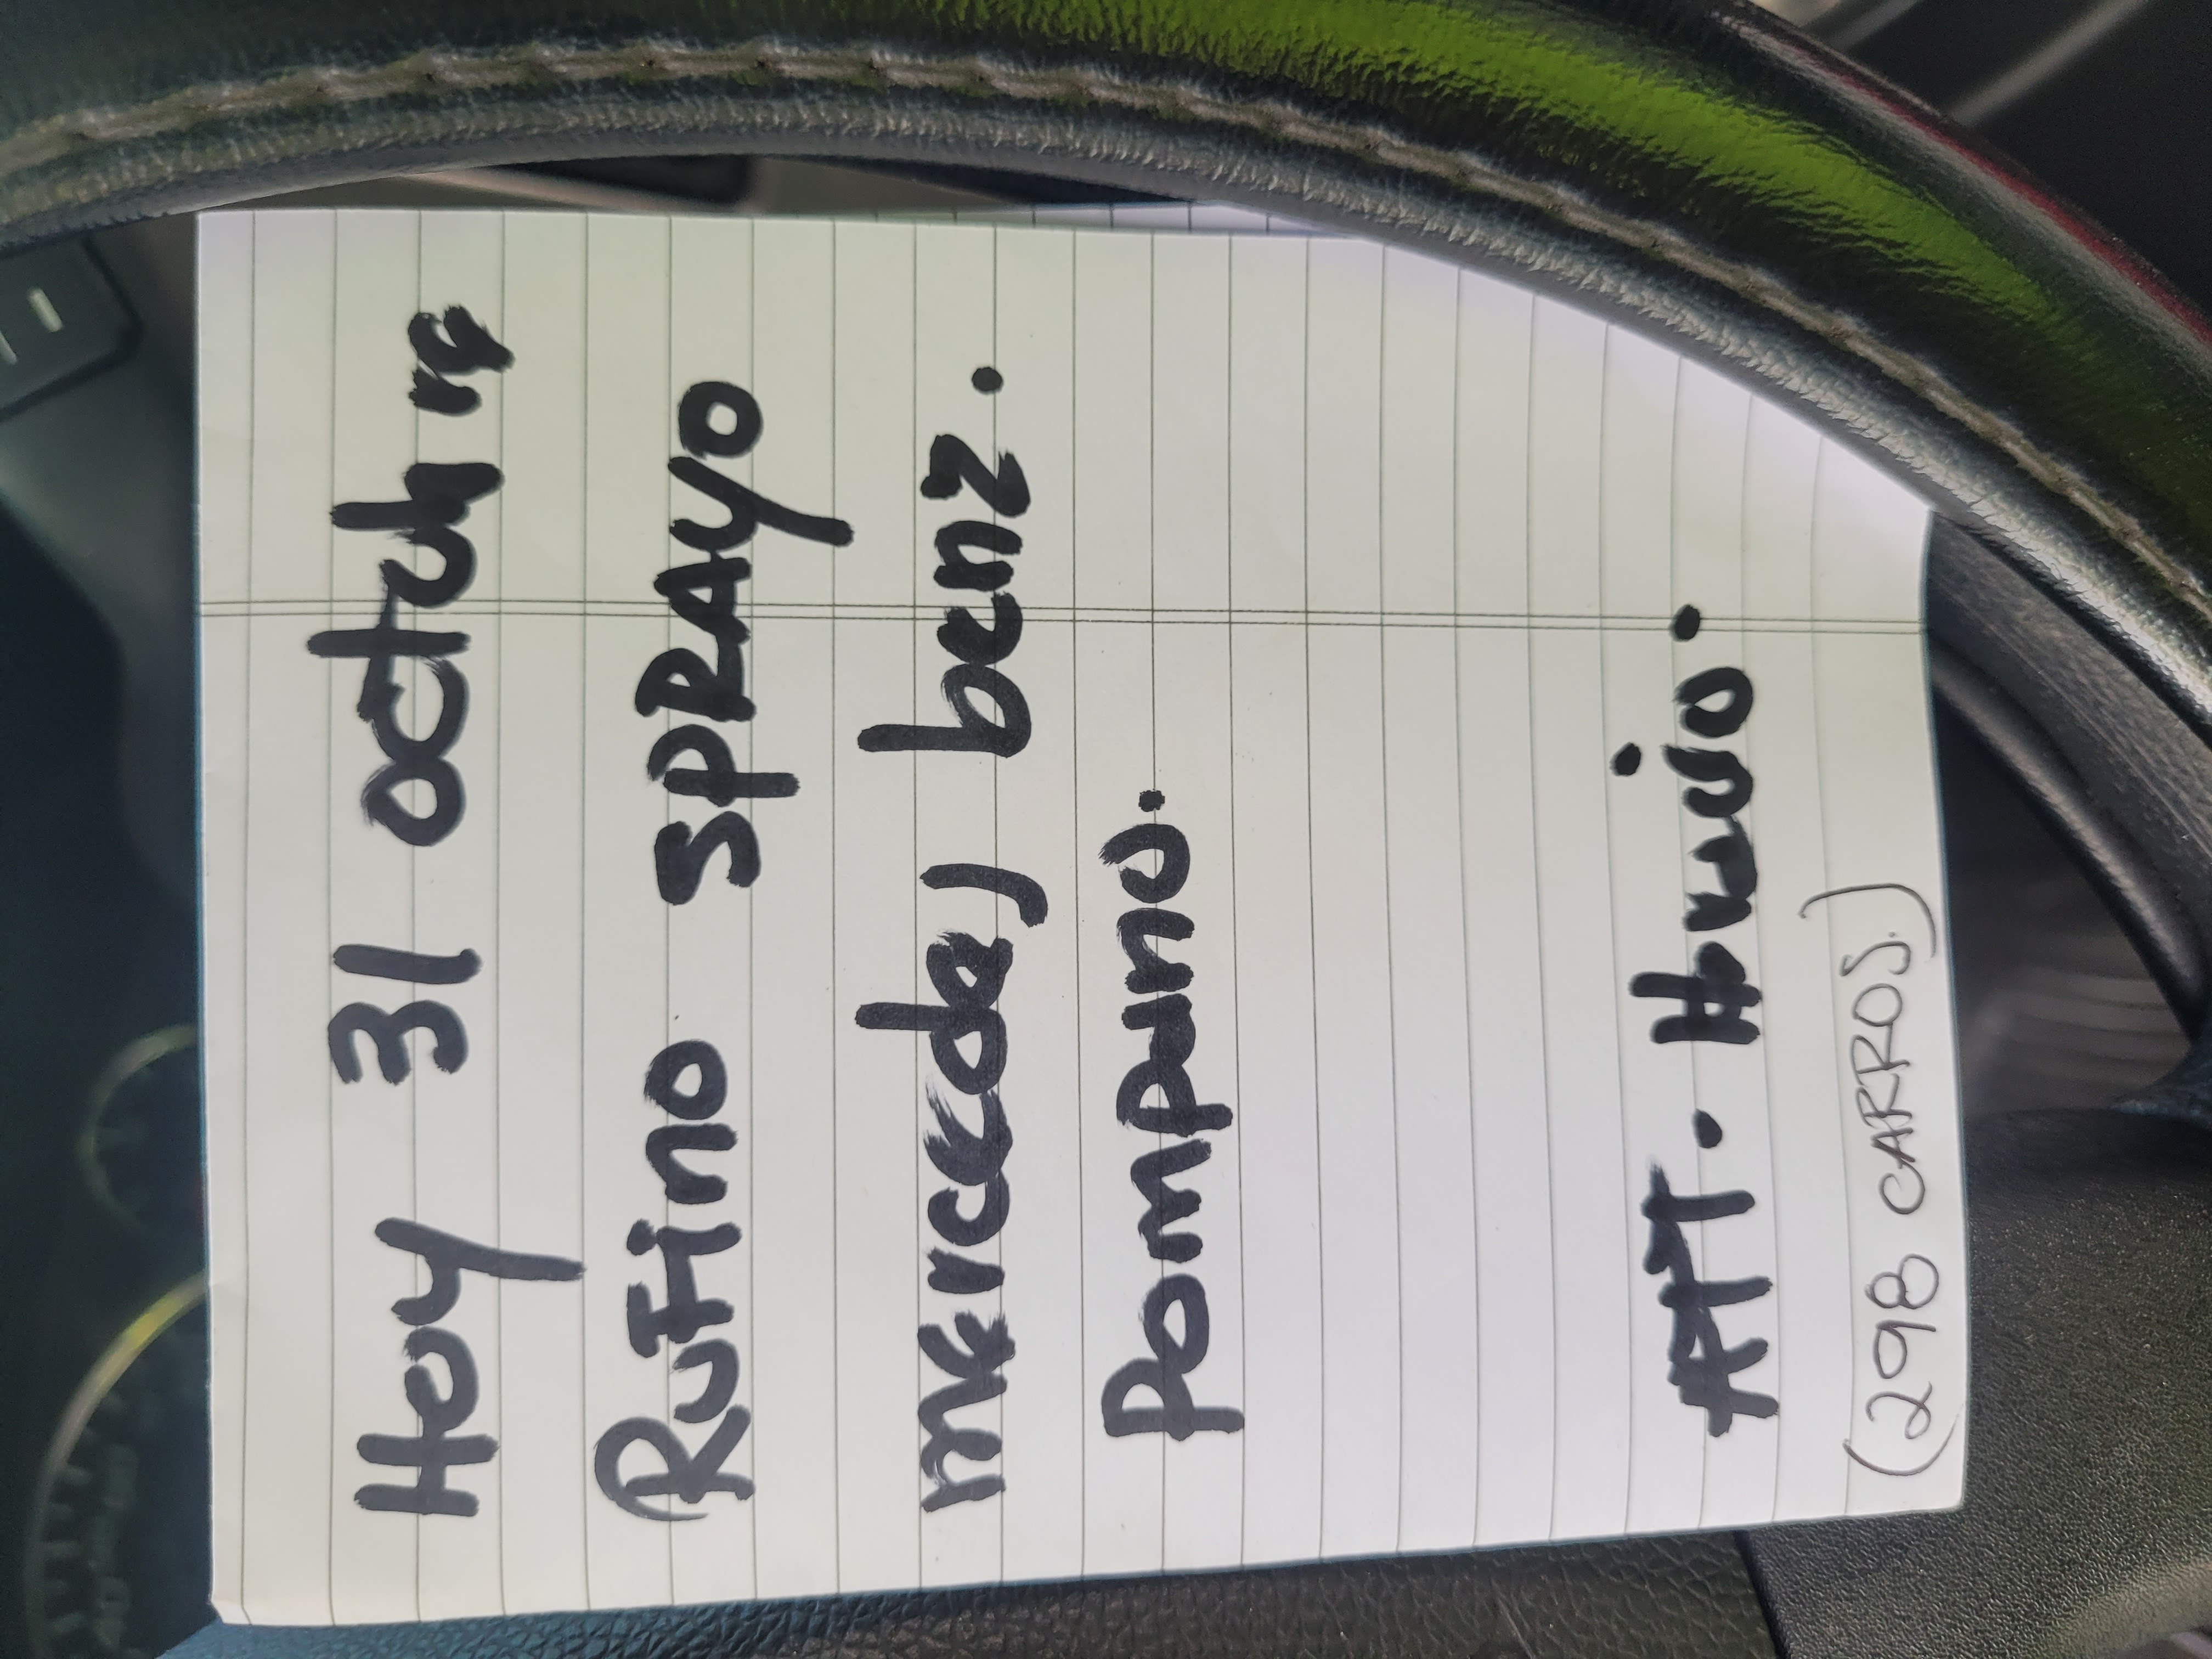 Hoy 31 octubre
Rufino SPRAYO
mercedes benz.
Pompano.
ATT. Hawio.
(298 CARROS.)